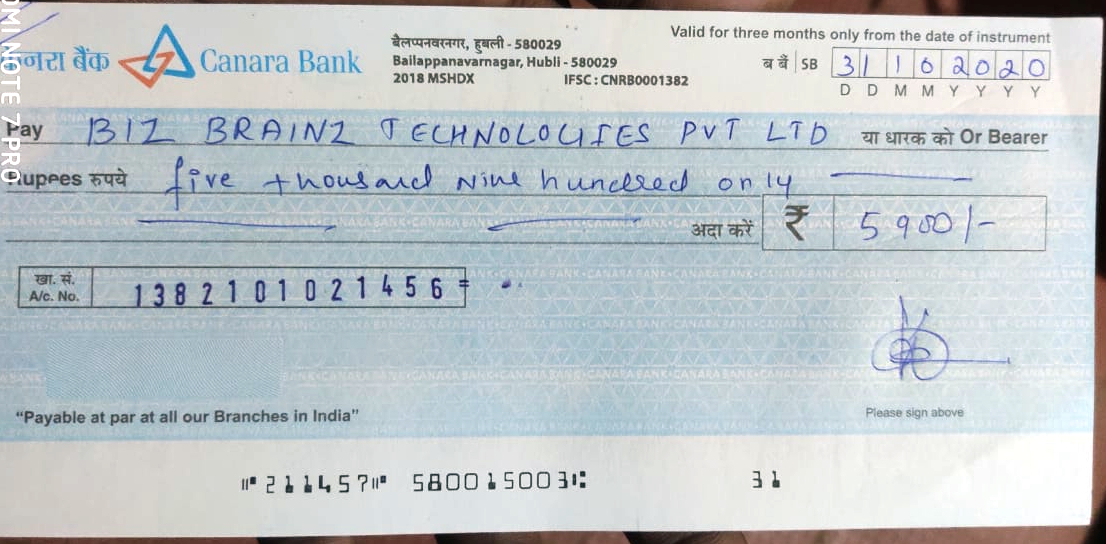 केनरा बैंक Canara Bank
बैलप्पनवरनगर, हुबली - 580029
Bailappanavarnagar, Hubli - 580029
2018 MSHDX IFSC : CNRB0001382
Valid for three months only from the date of instrument
ब बैं SB 31102020
D D M M Y Y Y Y
Pay BIZ BRAINZ TECHNOLOGIES PVT LTD या धारक को Or Bearer
Rupees रुपये five thousand Nine hundred only
अदा करें ₹ 5900/-
खा. सं.
A/c. No. 1382101021456
"Payable at par at all our Branches in India"
Please sign above
⑈211457⑈ 580015003⑆ 31
NOTE 7 PRO